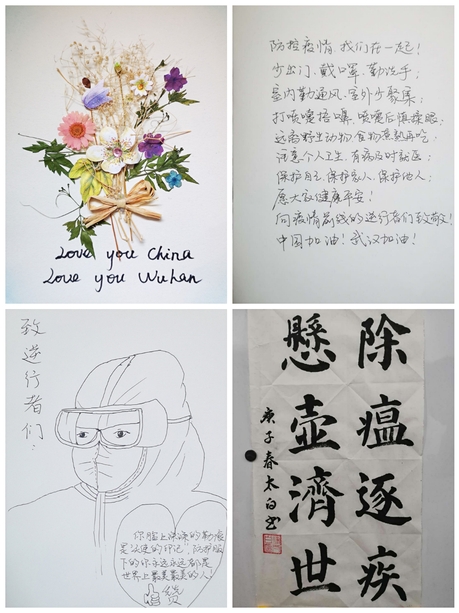 Love you China
Love you Wuhan
防控疫情 我们在一起！
少出门、戴口罩、勤洗手；
室内勤通风、室外少聚集；
打喷嚏捂口鼻，喷嚏后慎揉眼；
远离野生动物，食物煮熟再吃；
注意个人卫生，有病及时就医；
保护自己、保护家人、保护他人；
愿大家健康平安！
向疫情前线的逆行者们致敬！
中国加油！武汉加油！
致逆行者们：
你脸上深深的勒痕
是的印记，防护服
下的你永远永远都是
世界上最美最美的人！
赞
除瘟逐疾
懸壺濟世
庚子春太白书